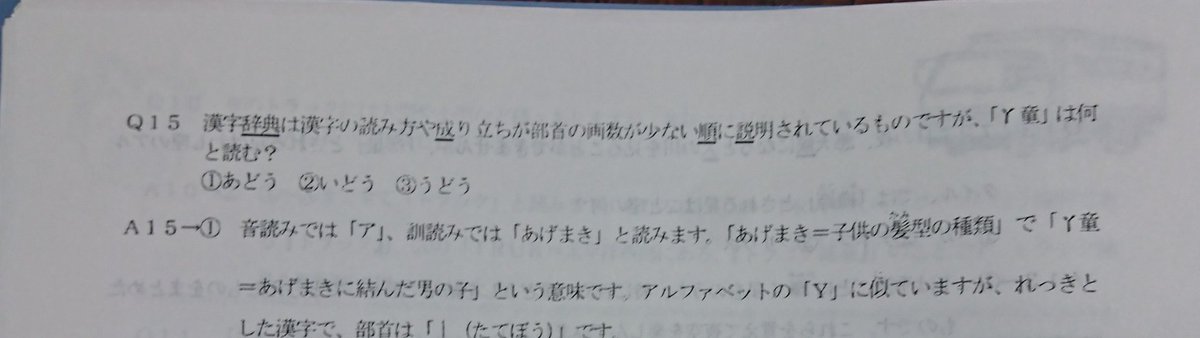 Q15 漢字辞典は漢字の読み方や成り立ちが部首の画数が少ない順に説明されているものですが、「丫童」は何
と読む?
①あどう ②いどう ③うどう
A15→① 音読みでは「ア」、訓読みでは「あげまき」と読みます。「あげまき=子供の髪型の種類」で「丫童
=あげまきに結んだ男の子」という意味です。アルファベットの「Y」に似ていますが、れっきと
した漢字で、部首は「丨(たてぼう)」です。